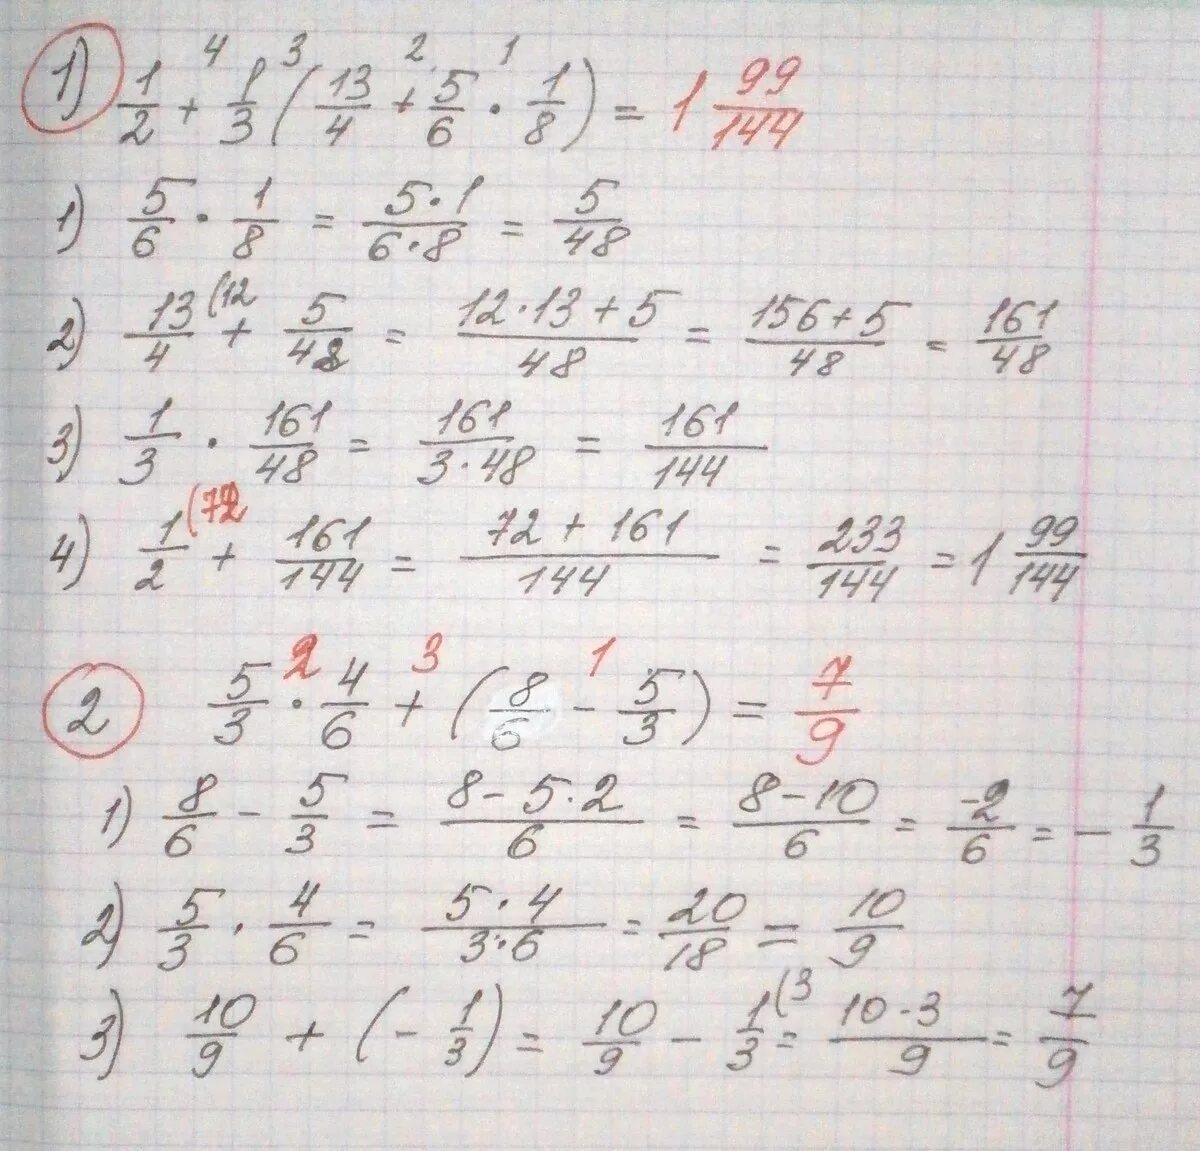 4 3 2 1
1) 1/2 + 1/3 (13/4 + 5/6 · 1/8) = 1 99/144
1) 5/6 · 1/8 = 5·1/6·8 = 5/48
2) 13/4 (12 + 5/48 = 12·13+5/48 = 156+5/48 = 161/48
3) 1/3 · 161/48 = 161/3·48 = 161/144
4) 1/2 (72 + 161/144 = 72+161/144 = 233/144 = 1 99/144
2 3 1
2 5/3 · 4/6 + (8/6 - 5/3) = 7/9
1) 8/6 - 5/3 = 8-5·2/6 = 8-10/6 = -2/6 = - 1/3
2) 5/3 · 4/6 = 5·4/3·6 = 20/18 = 10/9
3) 10/9 + (- 1/3) = 10/9 - 1/3 (3 = 10-3/9 = 7/9